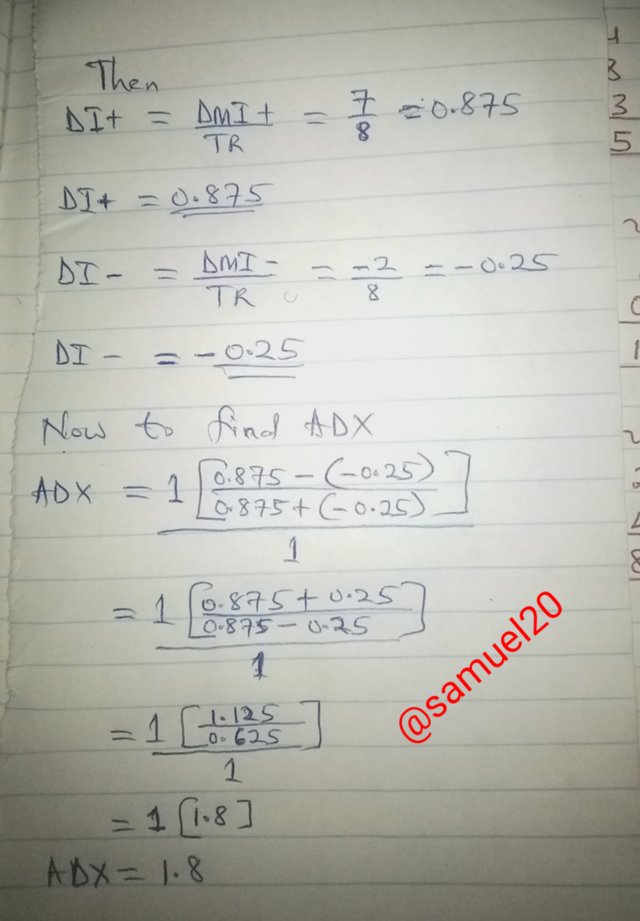 Then
DI+ = DMI+/TR = 7/8 = 0.875
DI+ = 0.875
DI- = DMI-/TR = -2/8 = -0.25
DI- = -0.25
Now to find ADX
ADX = 1[0.875-(-0.25)/0.875+(-0.25)]/1
= 1[0.875+0.25/0.875-0.25]/1
= 1[1.125/0.625]/1
@samuel20
= 1[1.8]
ADX = 1.8